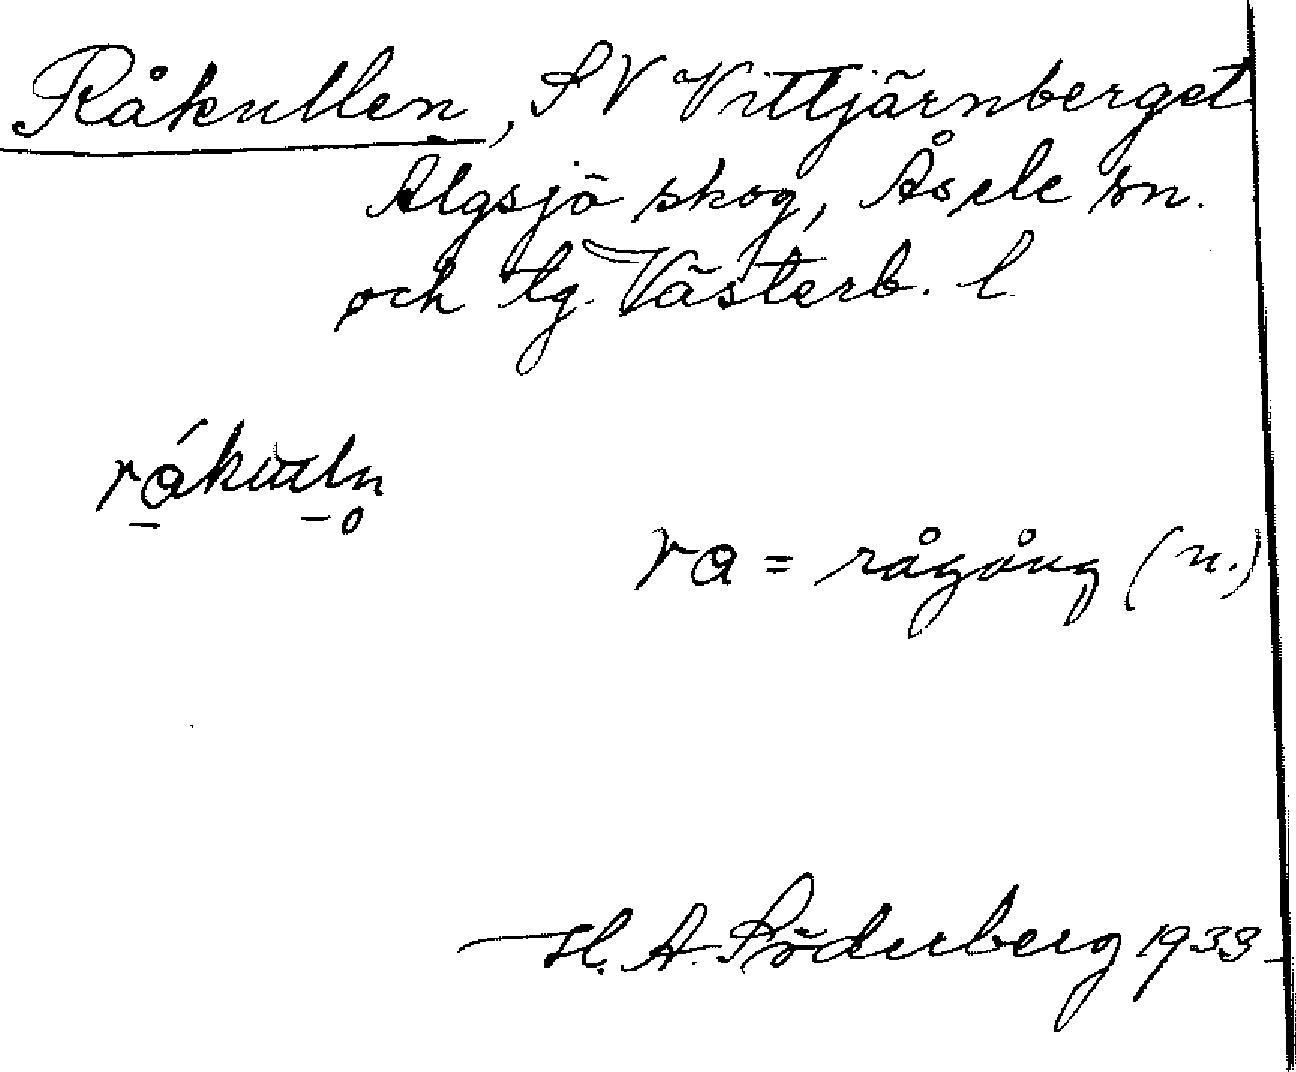 Råkullen, SV Vittjärnberget
Älgsjö skog, Åsele sn.
och lg. Västerb. l
råkulln
rå = rågång (n.)
H. A. Söderberg 1933